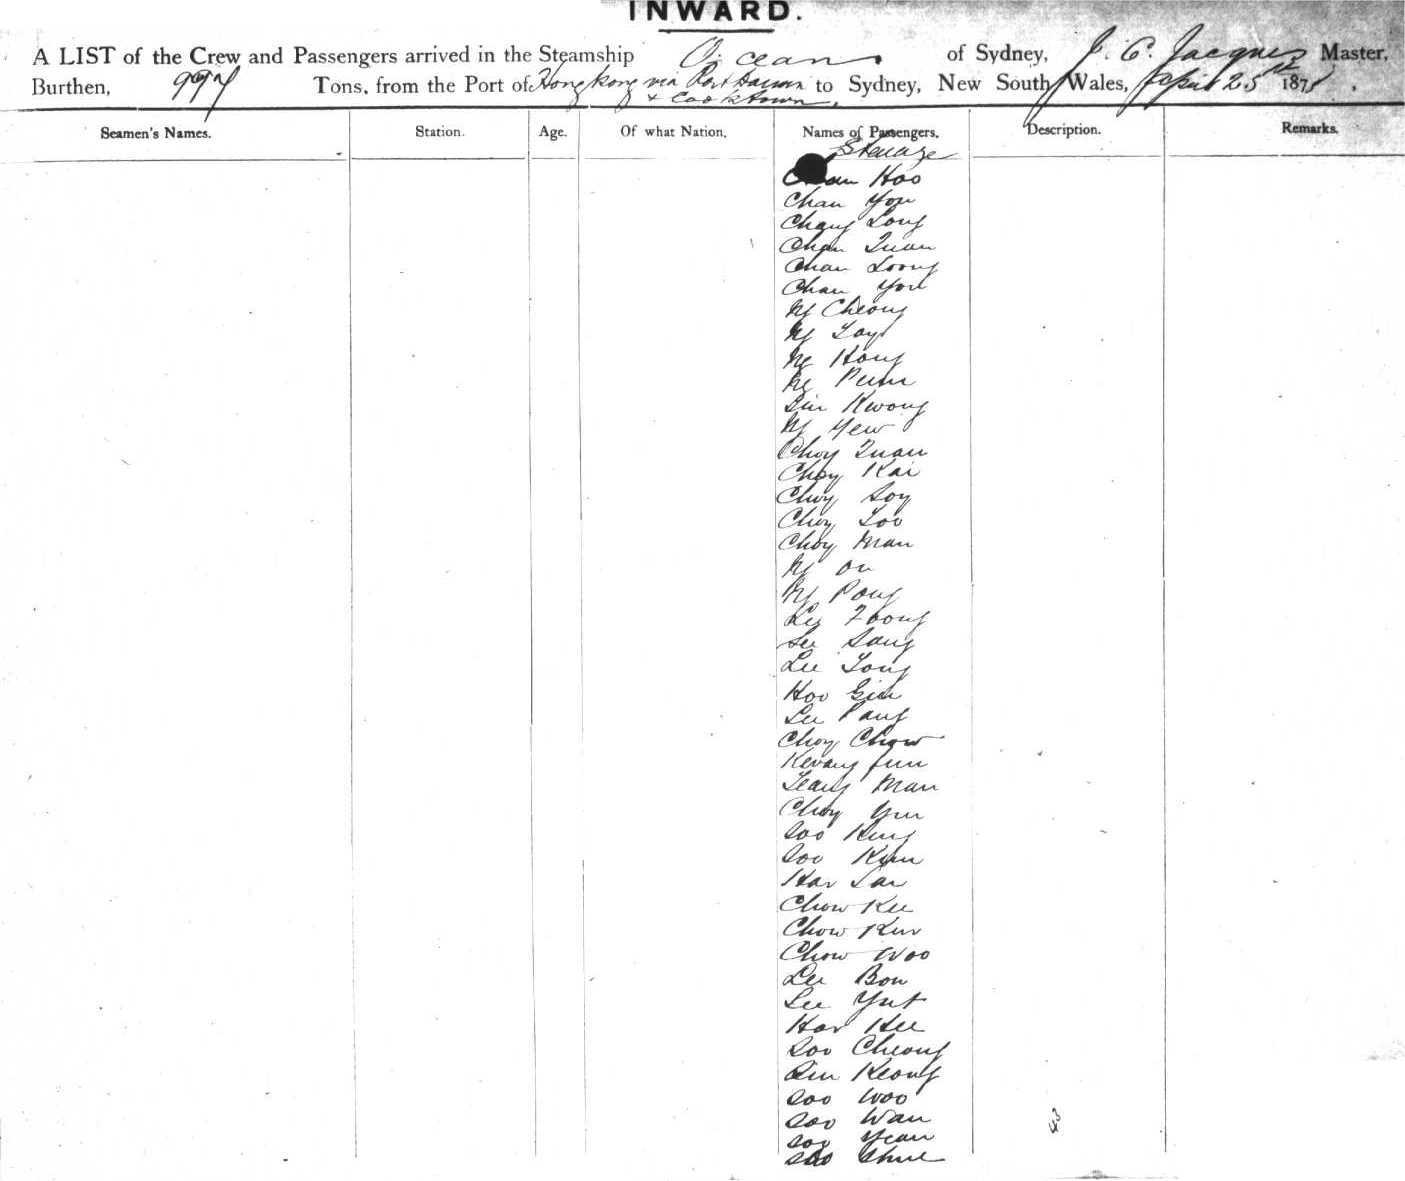 INWARD.
A LIST of the Crew and Passengers arrived in the Steamship Ocean of Sydney, J. C. Jacques Master,
Burthen, 997 Tons, from the Port of Hong Kong via Port Darwin & Cooktown to Sydney, New South Wales, April 25th 1878.
Seamen's Names. Station. Age. Of what Nation. Names of Passengers. Description. Remarks.
Steerage
Chan Hoo
Chan You
Chang Long
Chan Quan
Chan Loong
Chan You
Ng Cheong
Ng Lay
Ng Hong
Ng Pum
Lin Kwong
Ng Yew
Choy Quan
Choy Kai
Choy Soy
Choy Loo
Choy Man
Ng On
Ng Pong
Lee Foong
Lee Sang
Lee Tong
Hoo Gim
Lee Pang
Choy Chow
Kwang Fun
Leang Man
Choy Yun
Soo King
Soo Kum
Har Lai
Chow Kee
Chow Kin
Chow Woo
Lee Bon
Lee Yut
Har Hee
Soo Cheong
Lin Keong
Soo Woo
Soo Wan
Soo Yean
Soo Shue
43